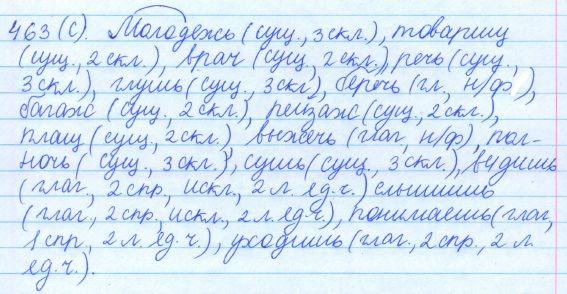 463 (С). Молодежь (сущ., 3 скл.), товарищ
(сущ., 2 скл.), врач (сущ., 2 скл.), речь (сущ.,
3 скл.), глушь (сущ., 3 скл), беречь (гл, н/ф),
багаж (сущ., 2 скл.), пейзаж (сущ., 2 скл.),
плащ (сущ., 2 скл.), выжечь (глаг, н/ф), пол-
ночь (сущ., 3 скл.), сушь (сущ., 3 скл.), видишь
(глаг., 2 спр., искл., 2 л. ед. ч.) слышишь
(глаг., 2 спр., искл., 2 л. ед. ч.), понимаешь (глаг,
1 спр., 2 л. ед. ч.), уходишь (глаг., 2 спр., 2 л.
ед. ч.).